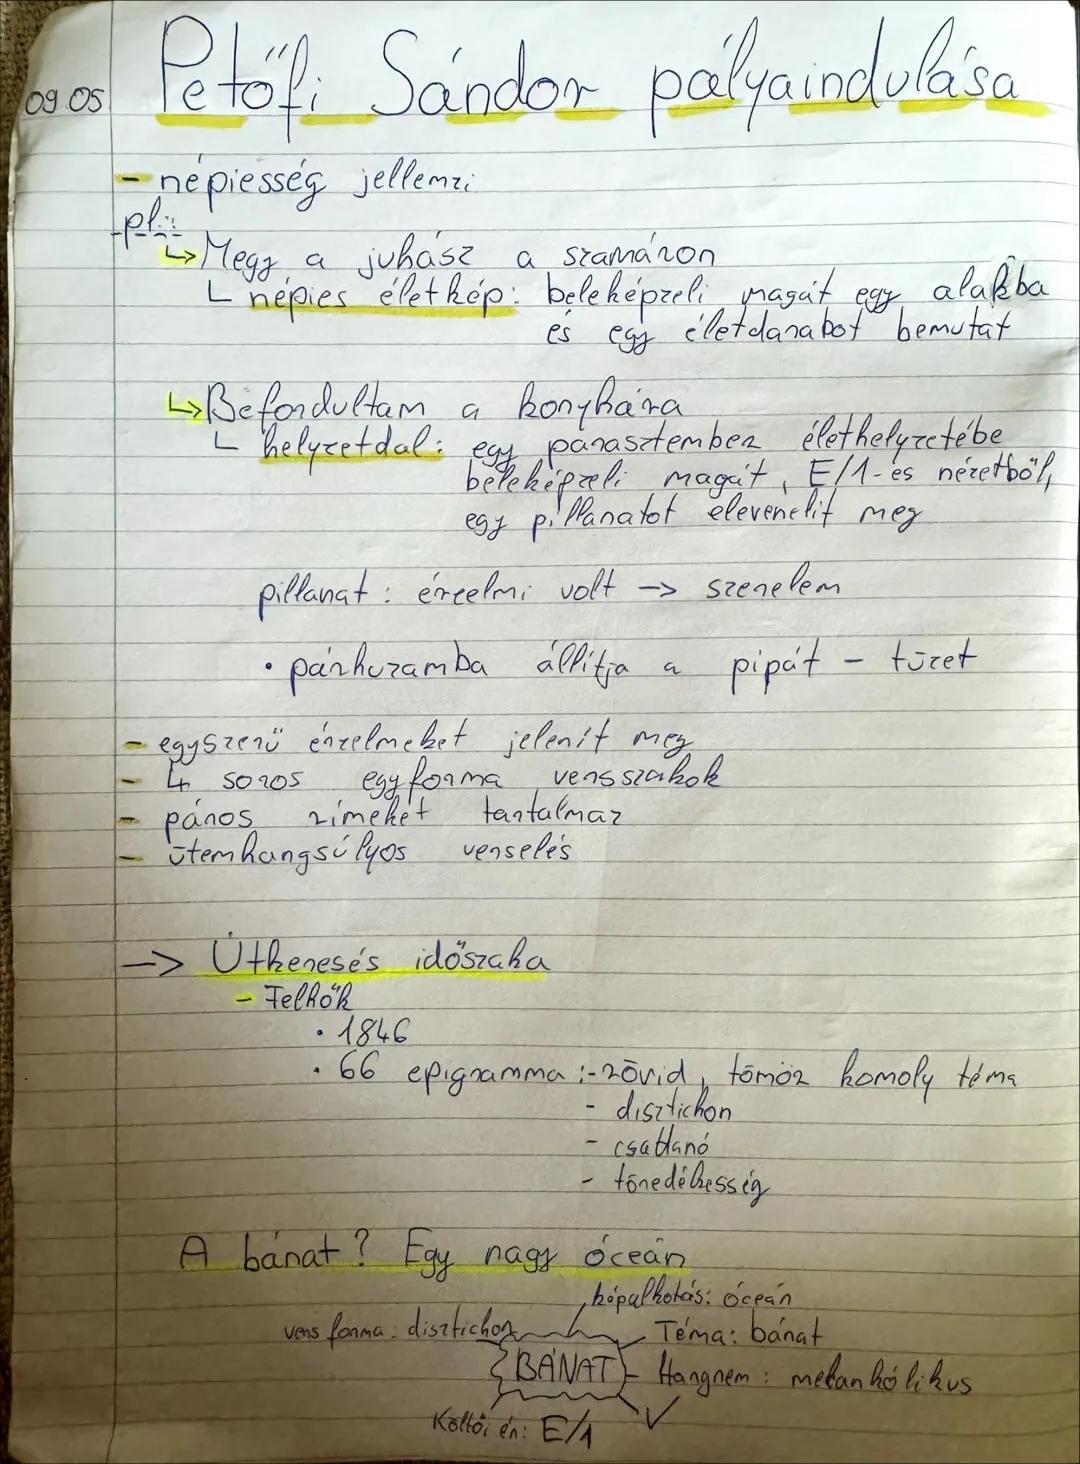 09.05 Petőfi Sándor pályaindulása
- népiesség jellemzi
- pl.:
↳ Megy a juhász a szamáron
∟ népies életkép: beleképzeli magát egy alakba
és egy életdarabot bemutat
↳ Befordultam a konyhára
∟ helyzetdal: egy parasztember élethelyzetébe
beleképzeli magát, E/1-es nézetből,
egy pillanatot elevenelit meg
pillanat: érzelmi volt -> szerelem
• párhuzamba állítja a pipát - tüzet
- egyszerű érzelmeket jelenít meg
- 4 soros egyforma versszakok
- páros rímeket tartalmaz
- ütemhangsúlyos verselés
-> Útkeresés időszaka
- Felhők
• 1846
• 66 epigramma :- rövid, tömör komoly téma
- disztichon
- csattanó
- töredékesség
A bánat? Egy nagy óceán
képalkotás: óceán
vers forma: disztichon
Téma: bánat
BÁNAT
Hangnem: melankólikus
Költői én: E/1